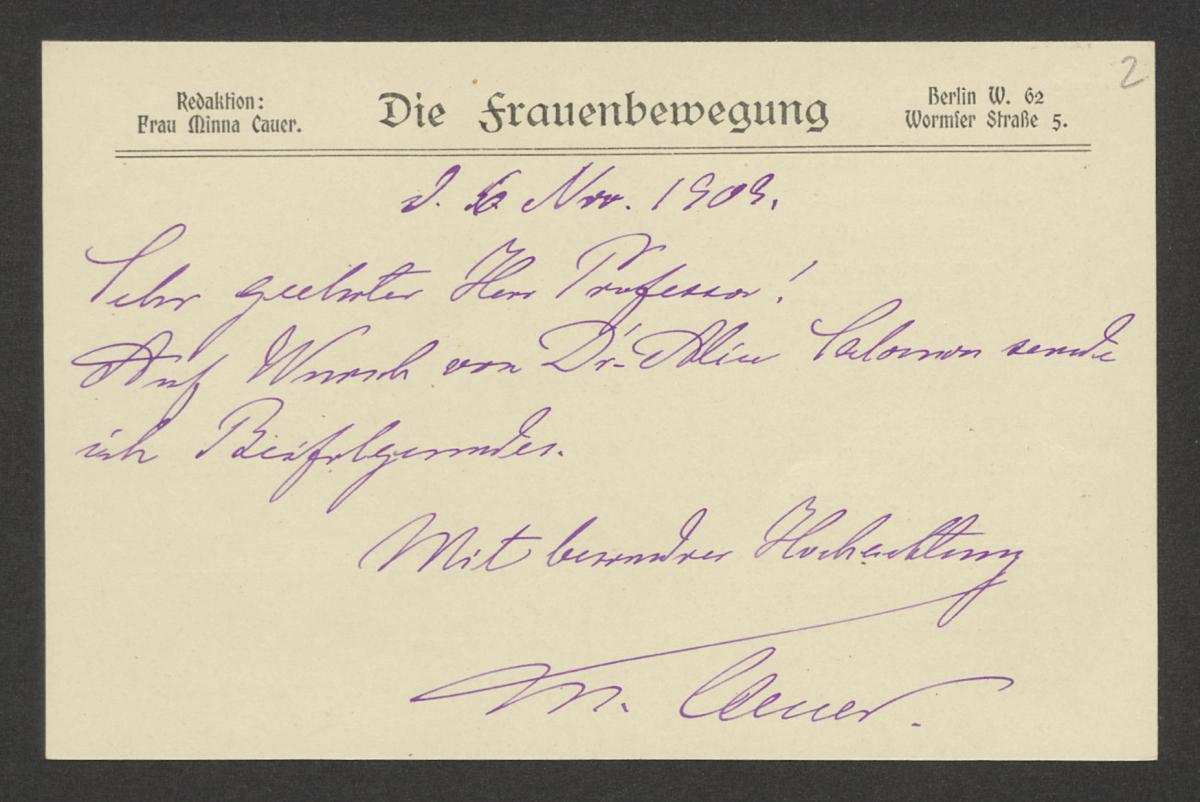 2
Redaktion:
Frau Minna Cauer.
Die Frauenbewegung
Berlin W. 62
Wormser Straße 5.
d. 6 Nov. 1909.
Sehr geehrter Herr Professor!
Auf Wunsch von Dr. Alice Salomon sende
ich Beifolgendes.
Mit besondrer Hochachtung
M. Cauer.